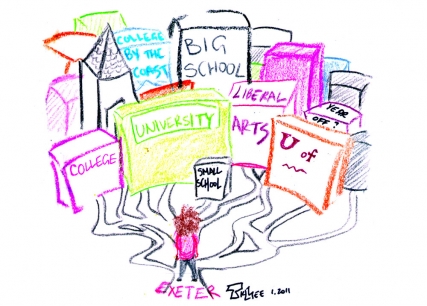 COLLEGE
BY THE
COAST
BIG
SCHOOL
LIBERAL
ARTS
YEAR
OFF?
UNIVERSITY
U of
COLLEGE
SMALL
SCHOOL
EXETER
1.2011